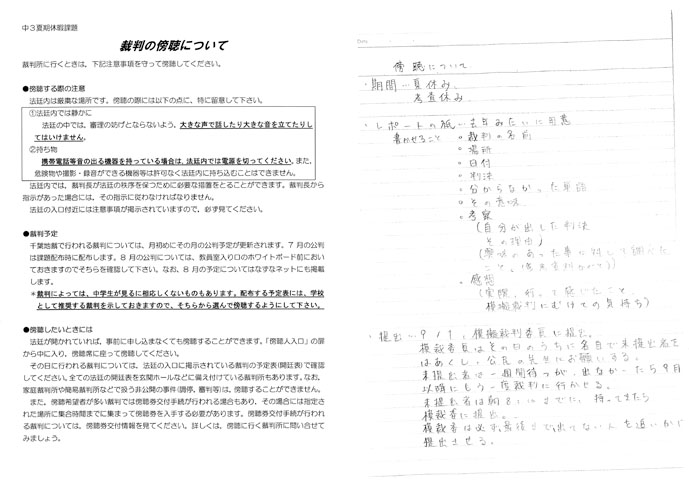 中3夏期休暇課題
裁判の傍聴について
裁判所に行くときは、下記注意事項を守って傍聴してください。
●傍聴する際の注意
法廷内は厳粛な場所です。傍聴の際には以下の点に、特に留意して下さい。
①法廷内では静かに
法廷の中では、審理の妨げとならないよう、大きな声で話したり大きな音を立てたりし
てはいけません。
②持ち物
携帯電話等音の出る機器を持っている場合は、法廷内では電源を切ってください。また、
危険物や撮影・録音ができる機器等は許可なく法廷内に持ち込むことはできません。
法廷内では、裁判長が法廷の秩序を保つために必要な措置をとることができます。裁判長から
指示があった場合には、その指示に従わなければなりません。
法廷の入口付近には注意事項が掲示されていますので、必ず見てください。
●裁判予定
千葉地裁で行われる裁判については、月初めにその月の公判予定が更新されます。7月の公判
は課題配布時に配布します。8月の公判については、教員室入り口のホワイトボード前において
おきますのでそちらを確認して下さい。なお、8月の予定についてはなずなネットにも掲載
します。
*裁判によっては、中学生が見るに相応しくないものもあります。配布する予定表には、学校
として推奨する裁判を示しておきますので、そちらから選んで傍聴するようにして下さい。
●傍聴したいときには
法廷が開かれていれば、事前に申し込まなくても傍聴することができます。「傍聴人入口」の扉
から中に入り、傍聴席に座って傍聴してください。
その日に行われる裁判については、法廷の入口に掲示されている裁判の予定表(開廷表)で確認
してください。全ての法廷の開廷表を玄関ホールなどに備え付けている裁判所もあります。なお、
家庭裁判所や簡易裁判所などで扱う非公開の事件(調停、審判等)は、傍聴することができません。
また、傍聴希望者が多い裁判では傍聴券交付手続が行われる場合もあり、その場合には指定さ
れた場所に集合時間までに集まって傍聴券を入手する必要があります。傍聴券交付手続が行われ
る裁判については、傍聴券交付情報を見てください。詳しくは、傍聴に行く裁判所に問い合せて
みましょう。
傍聴について
・期間…夏休み、
考査休み
・レポートの紙…去年みたいに用意
書かせること ◦裁判の名前
◦場所
◦日付
◦判決
◦分からなかった単語
◦その意味
◦考察
(自分が出した判決
その理由)
◦感想
(実際、行って感じたこと、
模擬裁判にむけての気持ち)
・提出…9/1、模擬裁判委員に提出。
模裁委員はその日のうちに各自で未提出者を
はあくし、公民の先生にお願いする。
未提出者は一週間待つが、出なかったら9月
以降にもう一度裁判に行かせる。
模裁委に提出。
模裁委は必ず最後まで出てない人を追いかけ
提出させる。